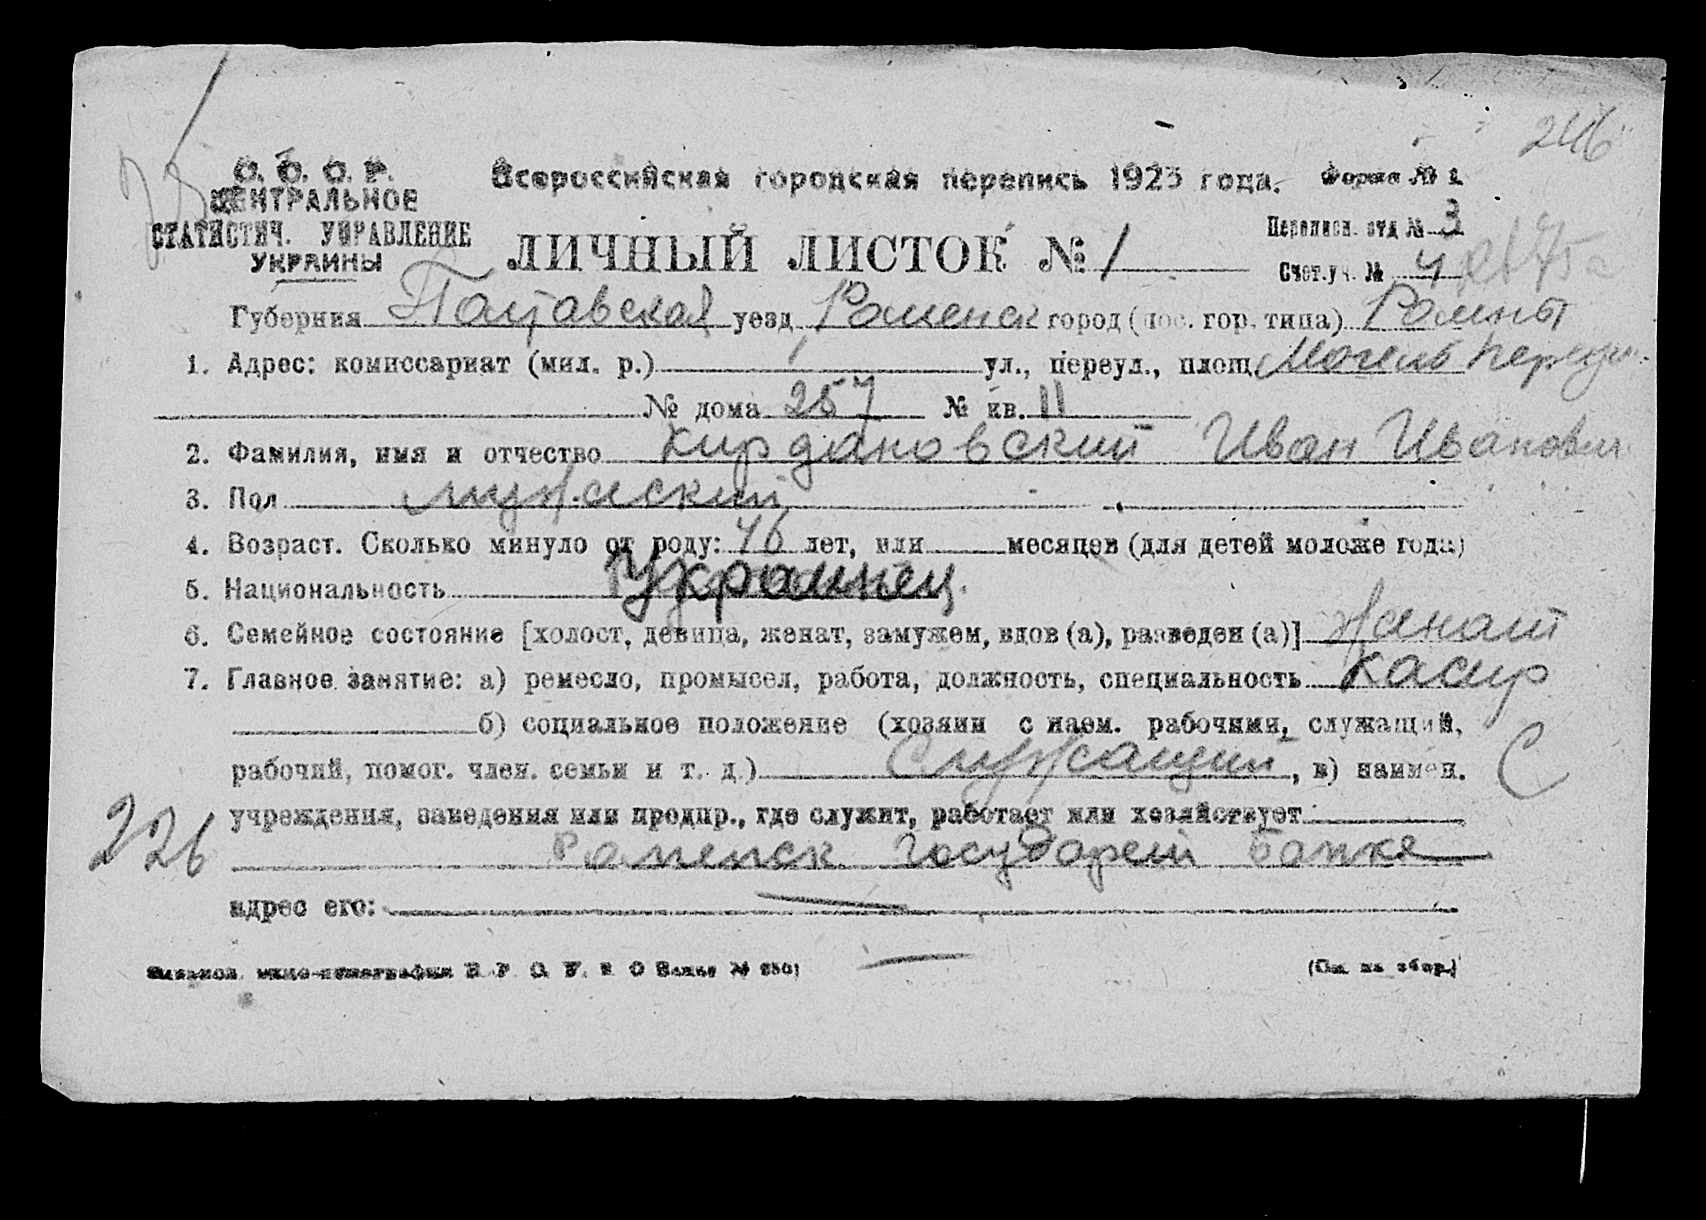 246
75
С. С. С. Р.
ЦЕНТРАЛЬНОЕ
СТАТИСТИЧ. УПРАВЛЕНИЕ
УКРАИНЫ
Всероссийская городская перепись 1923 года. Форма № 1
Перепиcн. отд № 3
ЛИЧНЫЙ ЛИСТОК № 1
Счет.уч. № 4
Губерния Полтавская уезд Роменск город (пос. гор. типа) Ромны
1. Адрес: комиссариат (мил. р.) 1 ул., переул., площ.
№ дома 257 № кв. 11
2. Фамилия, имя и отчество Кирдановский Иван Иванович
3. Пол мужеский
4. Возраст. Сколько минуло от роду: 46 лет, или месяцев (для детей моложе года)
5. Национальность Украинец.
6. Семейное состояние [холост, девица, женат, замужем, вдов (а), разведен (а)] Жанат
7. Главное занятие: а) ремесло, промысел, работа, должность, специальность касир
б) социальное положение (хозяин с наем. рабочими, служащий,
рабочий, помог. член. семьи и т. д.) Служащий, в) наимен. С
учреждения, заведения или предпр., где служит, работает или хозяйствует
226 Роменск Государст Банке
адрес его: —
(См. на обор.)